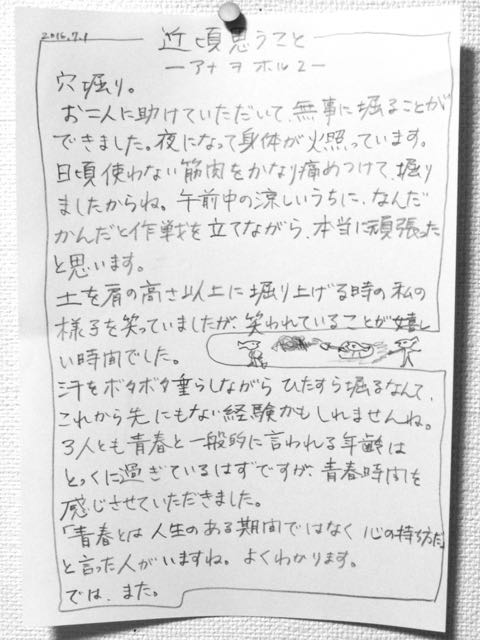 2016.7.1
近頃思うこと
ーアナヲホル2ー
穴堀り。
お二人に助けていただいて、無事に堀ることが
できました。夜になって身体が火照っています。
日頃使わない筋肉をかなり痛めつけて、堀り
ましたからね。午前中の涼しいうちに、なんだ
かんだと作戦を立てながら、本当に頑張った
と思います。
土を肩の高さ以上に堀り上げる時の私の
様子を笑っていましたが、笑われていることが嬉し
い時間でした。
汗をボタボタ垂らしながら ひたすら堀るなんて、
これから先にもない経験かもしれませんね。
3人とも青春と一般的に言われる年齢は
とっくに過ぎているはずですが、青春時間を
感じさせていただきました。
「青春とは人生のある期間ではなく 心の持ち方だ」
と言った人がいますね。よくわかります。
では、また。